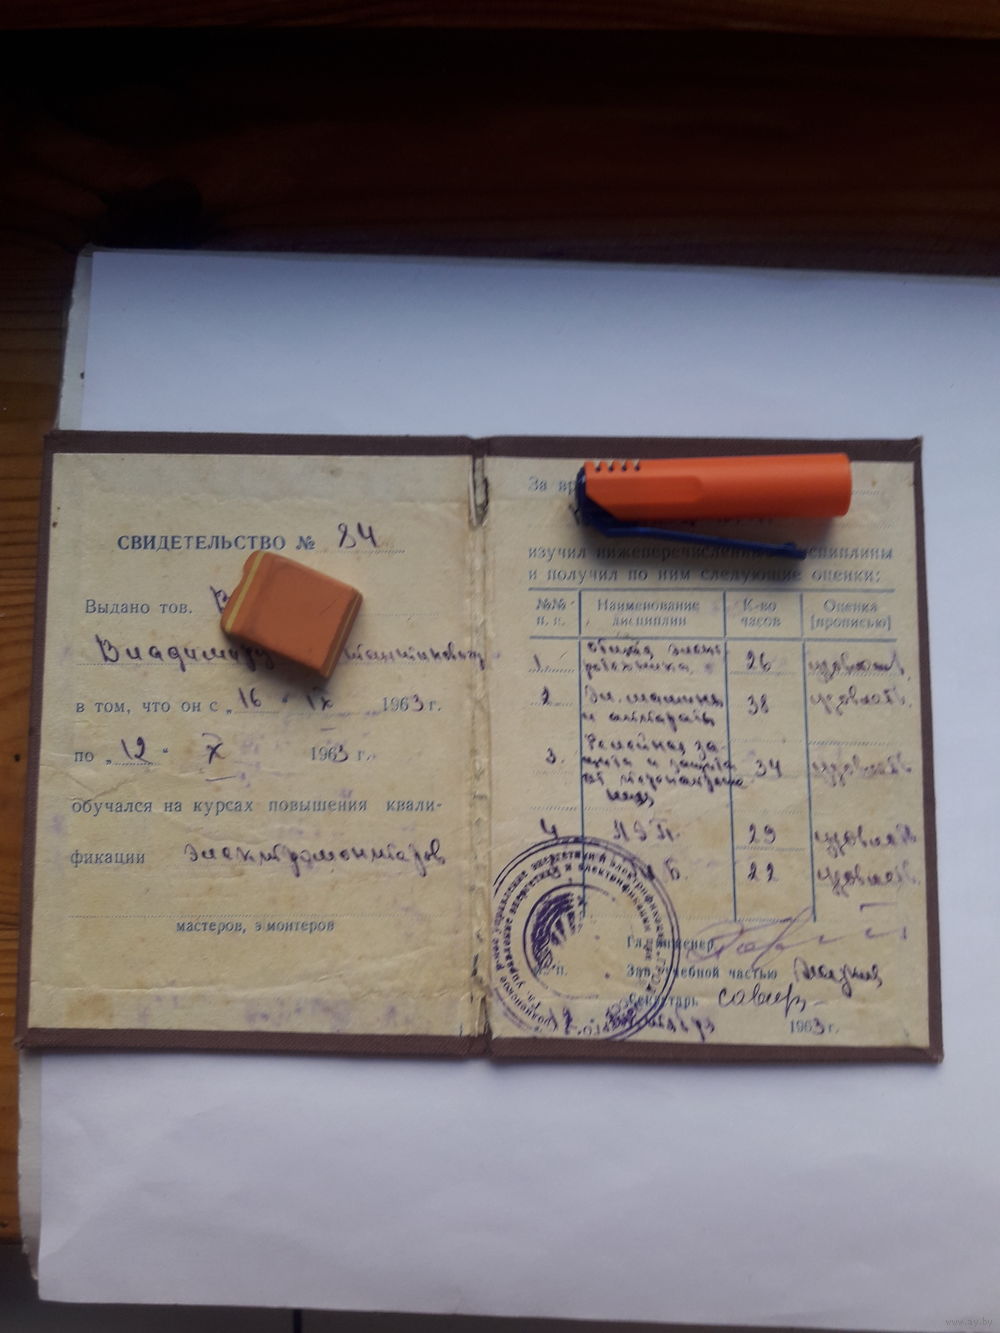 СВИДЕТЕЛЬСТВО № 84
Выдано тов. В
Владимиру
в том, что он с „ 16 " IX 1963 г.
по „ 12 " X 1963 г.
обучался на курсах повышения квали-
фикации электромонтаров
мастеров, э.монтеров
За вр
изучил нижеперечисленные дисциплины
и получил по ним следующие оценки:
№№ п. п. Наименование дисциплин К-во часов Оценка [прописью]
1. Общая электротехника 26 удовлетв.
2 Эл. машины и аппараты 38 удовлетв.
3. Релейная защита и защита от перенапряжений 34 удовлетв.
4 Л Э П. 29 удовлетв
Б. 22 удовлетв.
Гл. инженер
М. п. Зав. учебной частью
Секретарь
1963 г.
www.ay.by